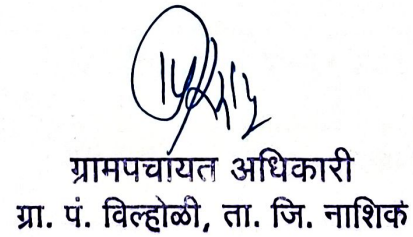 ग्रामपचांयत अधिकारी
ग्रा. पं. विल्होळी, ता. जि. नाशिक